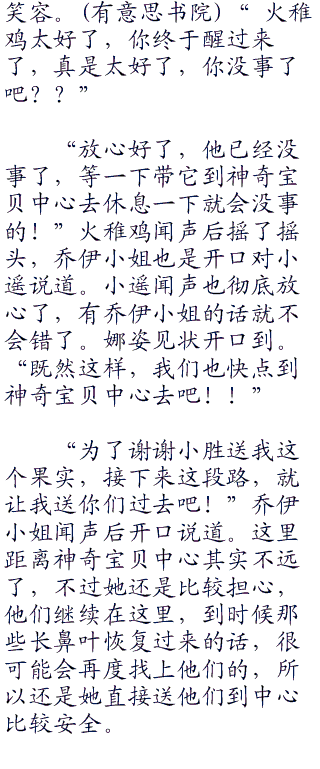 笑容。(有意思书院) “ 火稚
鸡太好了，你终于醒过来
了，真是太好了，你没事了
吧？？”
“放心好了，他已经没
事了，等一下带它到神奇宝
贝中心去休息一下就会没事
的！”火稚鸡闻声后摇了摇
头，乔伊小姐也是开口对小
遥说道。小遥闻声也彻底放
心了，有乔伊小姐的话就不
会错了。娜姿见状开口到。
“既然这样，我们也快点到
神奇宝贝中心去吧！！”
“为了谢谢小胜送我这
个果实，接下来这段路，就
让我送你们过去吧！”乔伊
小姐闻声后开口说道。这里
距离神奇宝贝中心其实不远
了，不过她还是比较担心，
他们继续在这里，到时候那
些长鼻叶恢复过来的话，很
可能会再度找上他们的，所
以还是她直接送他们到中心
比较安全。